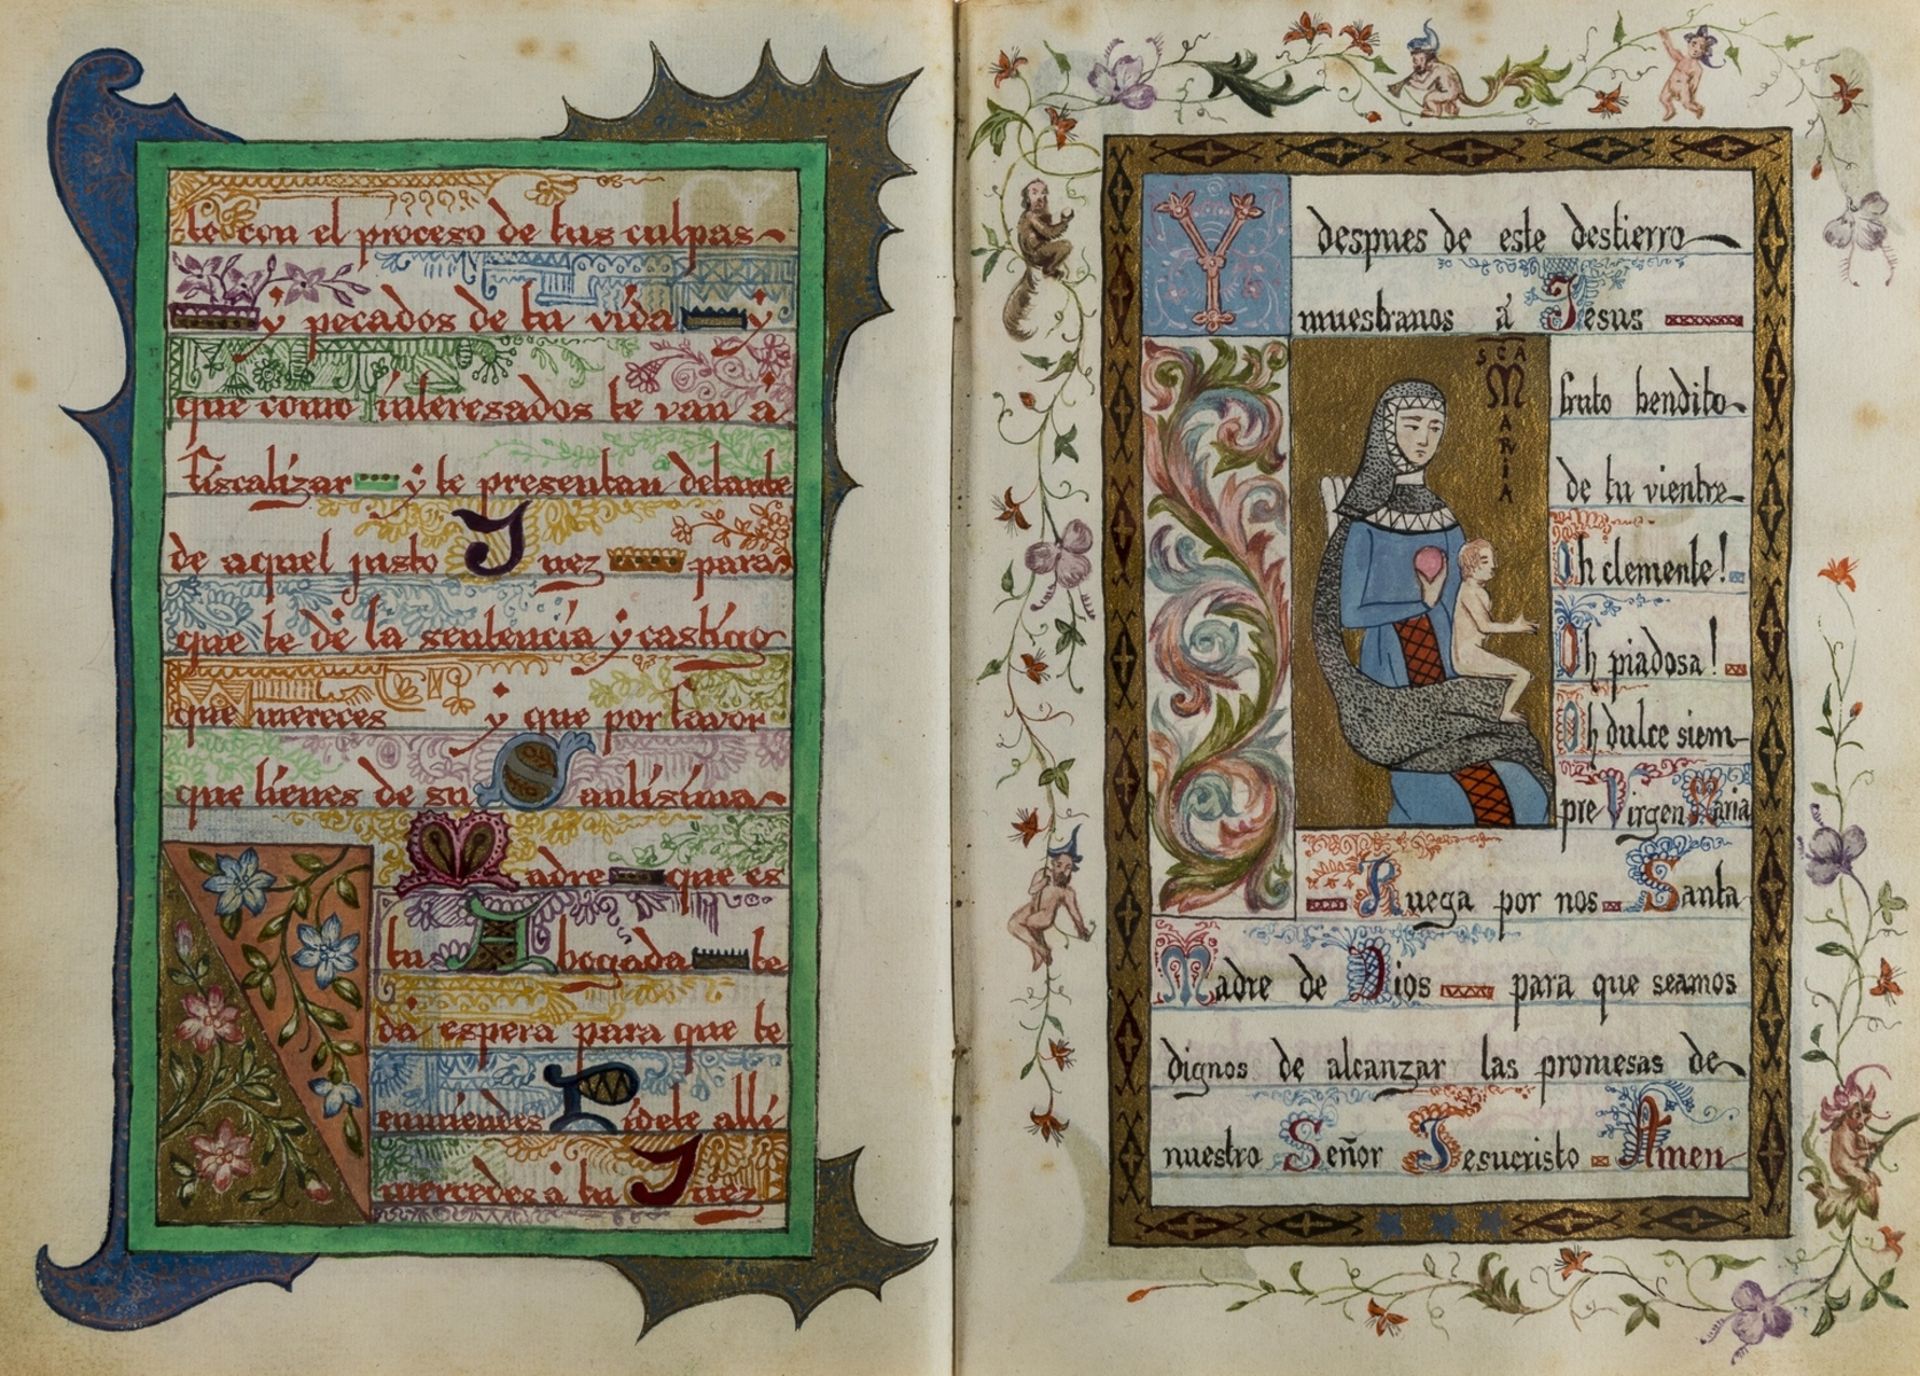 te con el proceso de tus culpas
y pecados de tu vida y
que como interesados te van á
fiscalizar y te presentan delante
de aquel justo Juez para
que te dé la sentencia y castigo
que mereces y que por favor
que tienes de su Santísima
Madre que es
tu Abogada te
dá espera para que te
enmiendes Pídele alli
mercedes á tu Juez
Y despues de este destierro
muestranos á Jesus
SCA MARIA
fruto bendito
de tu vientre
Oh clemente!
Oh piadosa!
Oh dulce siem-
pre Virgen Maria
Ruega por nos Santa
Madre de Dios para que seamos
dignos de alcanzar las promesas de
nuestro Señor Jesucristo Amen